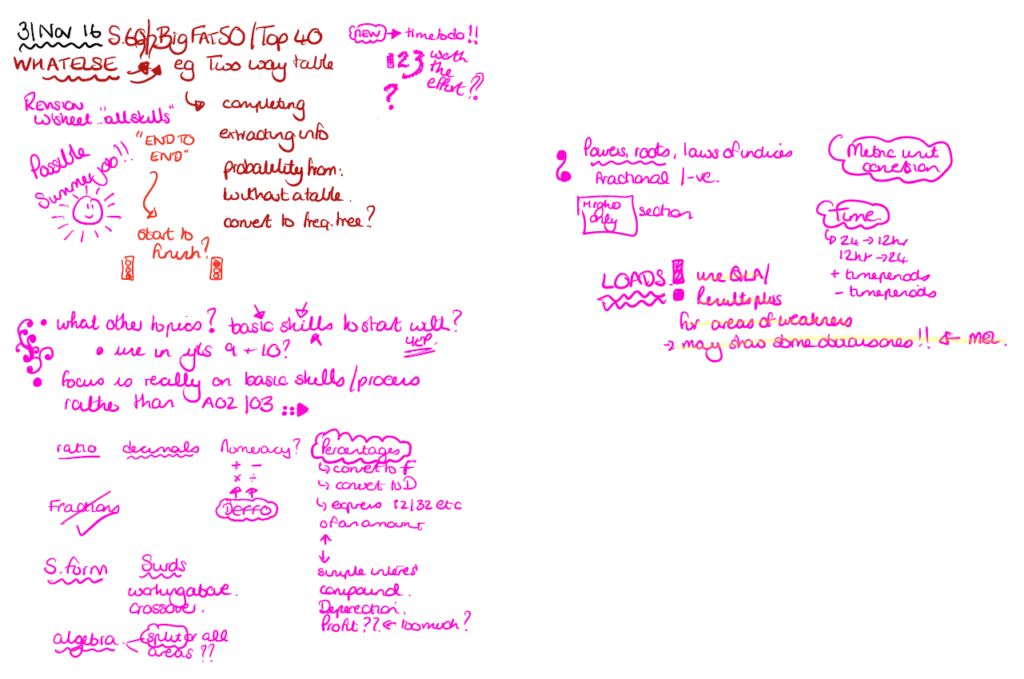 3/Nov 16 S.69/Big FATSO/Top 40
WHATELSE eg Two way table
completing
extracting info
probability from.
without a table.
convert to freq. tree?
NEW → time todo!!
123 worth
the
effort??
?
Revision
w/sheet "allskills"
Possible
Summer job!!
"END TO
END"
start to
finish?
• what other topics? basic skills to start with?
YEP
• use in yrs 9 + 10?
• focus is really on basic skills/process
rather than AO2/03
ratio decimals Numeracy?
+ −
× ÷
DEFFO
Percentages
↳ convert to F
↳ convert to D
↳ express 12/32 etc
of an amount
simple interest
compound.
Depreciation.
Profit?? ← too much?
Fractions
S.form Surds
working above.
crossover.
algebra split or all
areas??
Powers, roots, laws of indices
fractional /-ve.
Higher
only section
Metric unit
conversion
Time.
↳ 24 → 12hr
12hr → 24
+ timeperiods
- timeperiods
LOADS! use QLA/
Resultsplus
for areas of weakness
→ may show some obvious ones!! ← MEL